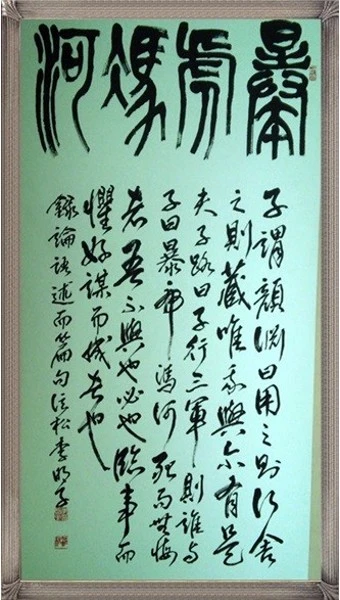 暴虎馮河
子謂顏淵曰用之則行舍
之則藏唯我與尔有是
夫子路曰子行三軍則誰与
子曰暴虎馮河死而無悔
者吾不與也必也臨事而
懼好謀而成者也
錄論語述而篇句松李明子